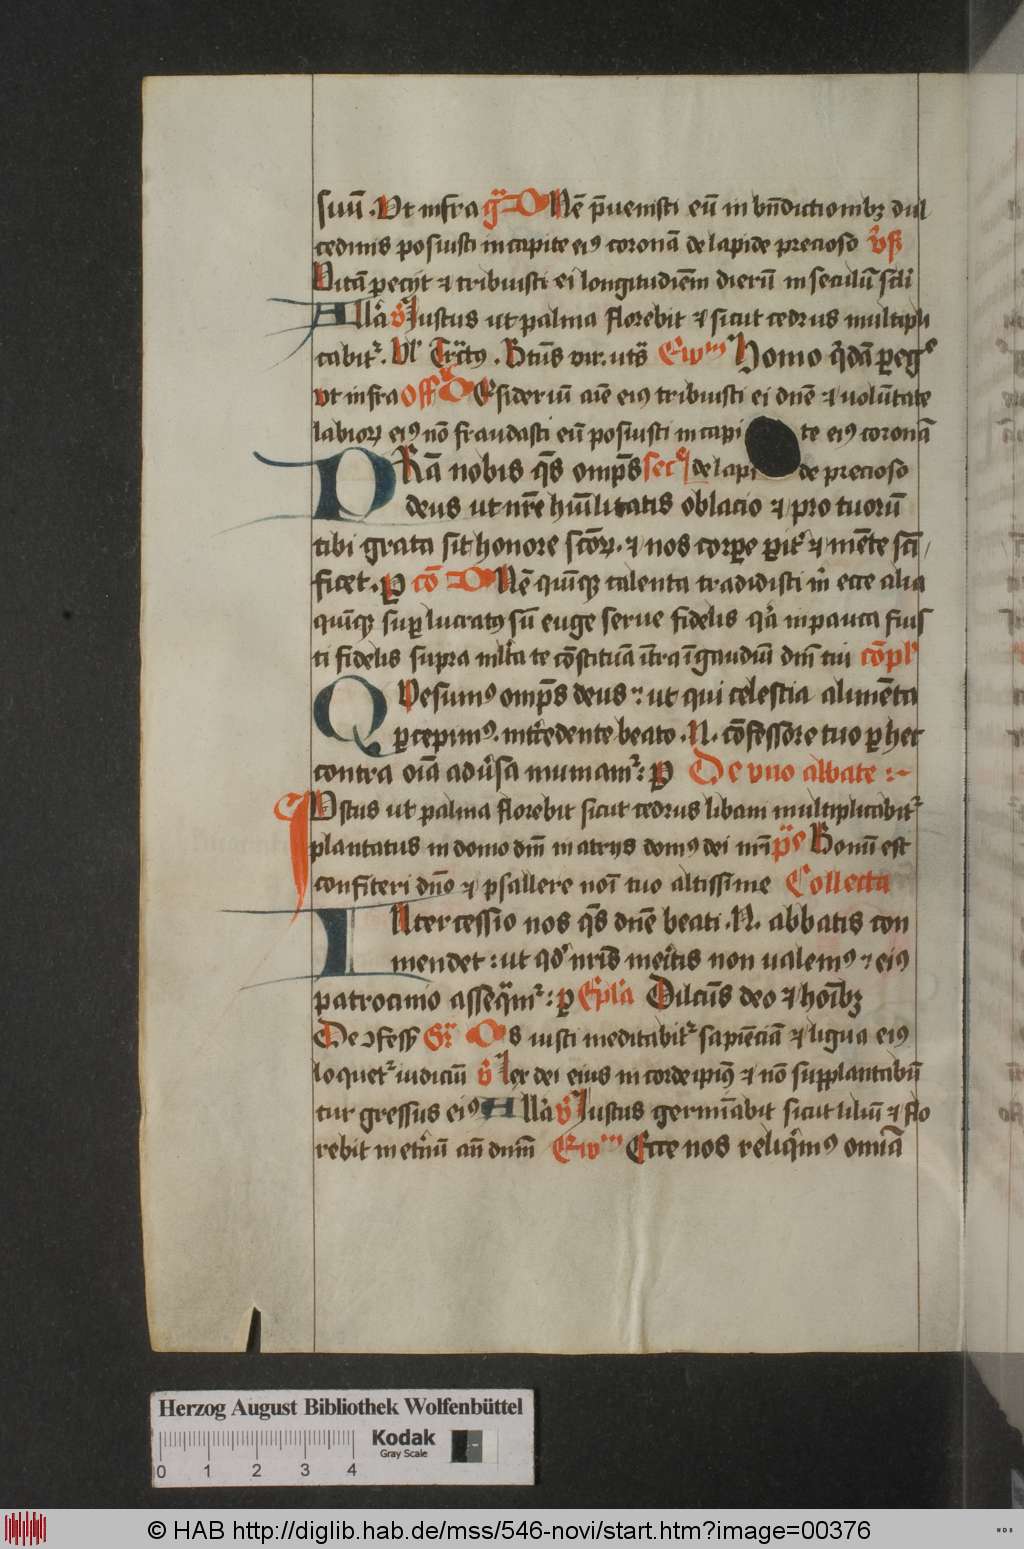 suū. Ut infra gͣ DNē p̄uenisti eū in bn̄dictionibꝫ dul
cedinis posuisti in capite eiꝰ coronā de lapide precioso v̓ꝭ
Vitā pecijt ⁊ tribuisti ei longitudinē dierū in seculū scl̓i
Allā v̓ Iustus ut palma florebit ⁊ sicut cedrus multipli
cabit᷑. Vl̓ Trāctꝰ. Btūs vir. utſᷓ Ewᵐ Homo q̓dā ꝑegᵉ
ut infra Off̓ DEsideriū aīe eiꝰ tribuisti ei dn̄e ⁊ volūtate
labioꝝ eiꝰ nō fraudasti eū posuisti in capi te eiꝰ coronā
PRāa nobis qs̄ omp̄s secᷓ de lapi de precioso
deus ut nr̄e hūilitatis oblacio ⁊ pro tuorū
tibi grata sit honore scōꝝ. ⁊ nos corꝑe ꝑit̓ ⁊ mēte scī/
ficet. ꝑ cō DNē quīqꝫ talenta tradidisti m̓ ecce alia
quīqꝫ suꝑ lucratꝰ sū euge serue fidelis q̓a in pauca fuis
ti fidelis supra ml̓ta te cōstituā ītra ī gaudiū dn̄i tui cōpl̓
QVesumꝰ omp̄s deus: ut qui celestia alimēta
ꝑcepimꝰ. int̓cedente beato .N. cōfessore tuo ꝑ hec
contra oīa adu̓sa muniam᷑: ꝑ De vno abbate :~
IVstus ut palma florebit sicut cedrus libani multiplicabit᷑
plantatus in domo dn̄i in atrijs domꝰ dei nr̄i pͣs Bonū est
confiteri dn̄o ⁊ psallere noī tuo altissime Collecta
INtercessio nos qs̄ dn̄e beati .N. abbatis con
mendet: ut qd̓ nr̄is meit̓is non valemꝰ ⁊ eiꝰ
patrocinio asseq̄m᷑: ꝑ Epl̓a Dilctūs deo ⁊ hoībꝫ
De ↄfess̓ Gͬ Os iusti meditabit᷑ sapiēciā ⁊ ligua eiꝰ
loquet᷑ iudiciū v̓ Lex dei eius in corde ipiꝰ ⁊ nō supplantabū
tur gressus eiꝰ Allā v̓ Iustus germīabit sicut liliū ⁊ flo
rebit in et̓nū an̄ dn̄m Ewᵐ Ecce nos reliq̓mꝰ omīa
Herzog August Bibliothek Wolfenbüttel
Kodak
Gray Scale
0 1 2 3 4
© HAB http://diglib.hab.de/mss/546-novi/start.htm?image=00376